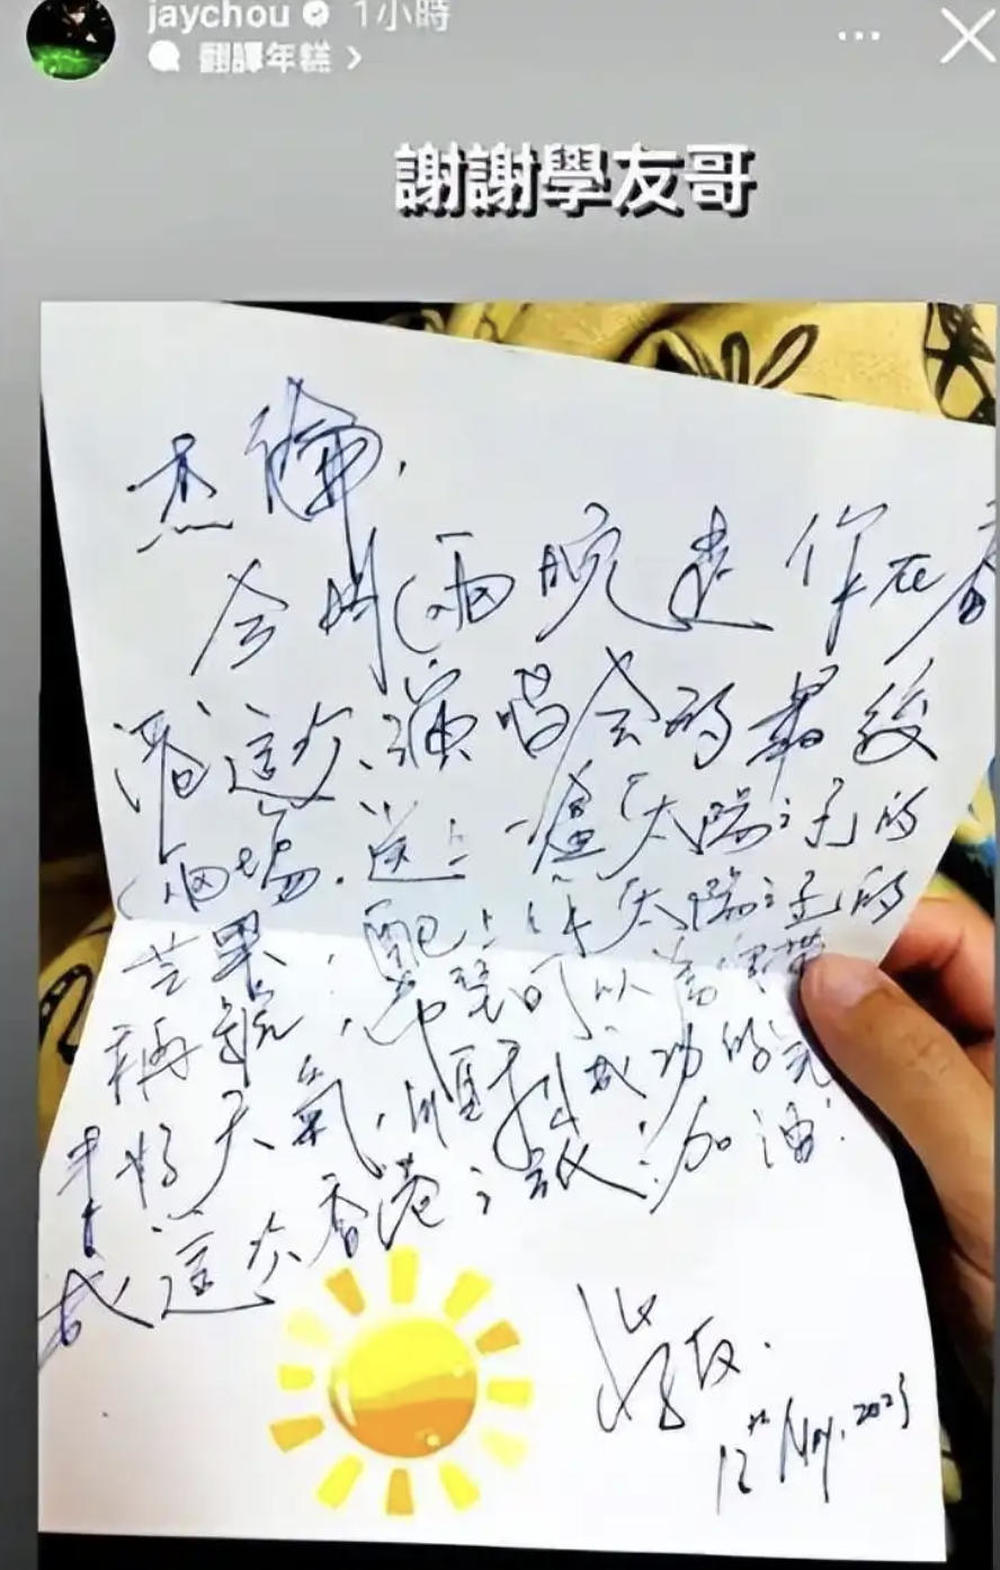 jaychou 1小時
翻譯年糕 >
謝謝學友哥
杰倫,
今明兩晚是你在香
港這次演唱会的最後
兩場,送上一盒太陽之子的
芒果,配上你太陽之子的
稱號,希望可以為你帶
来好天氣,順利成功的完
成這次香港之旅!加油!
學友.
12th May, 2023